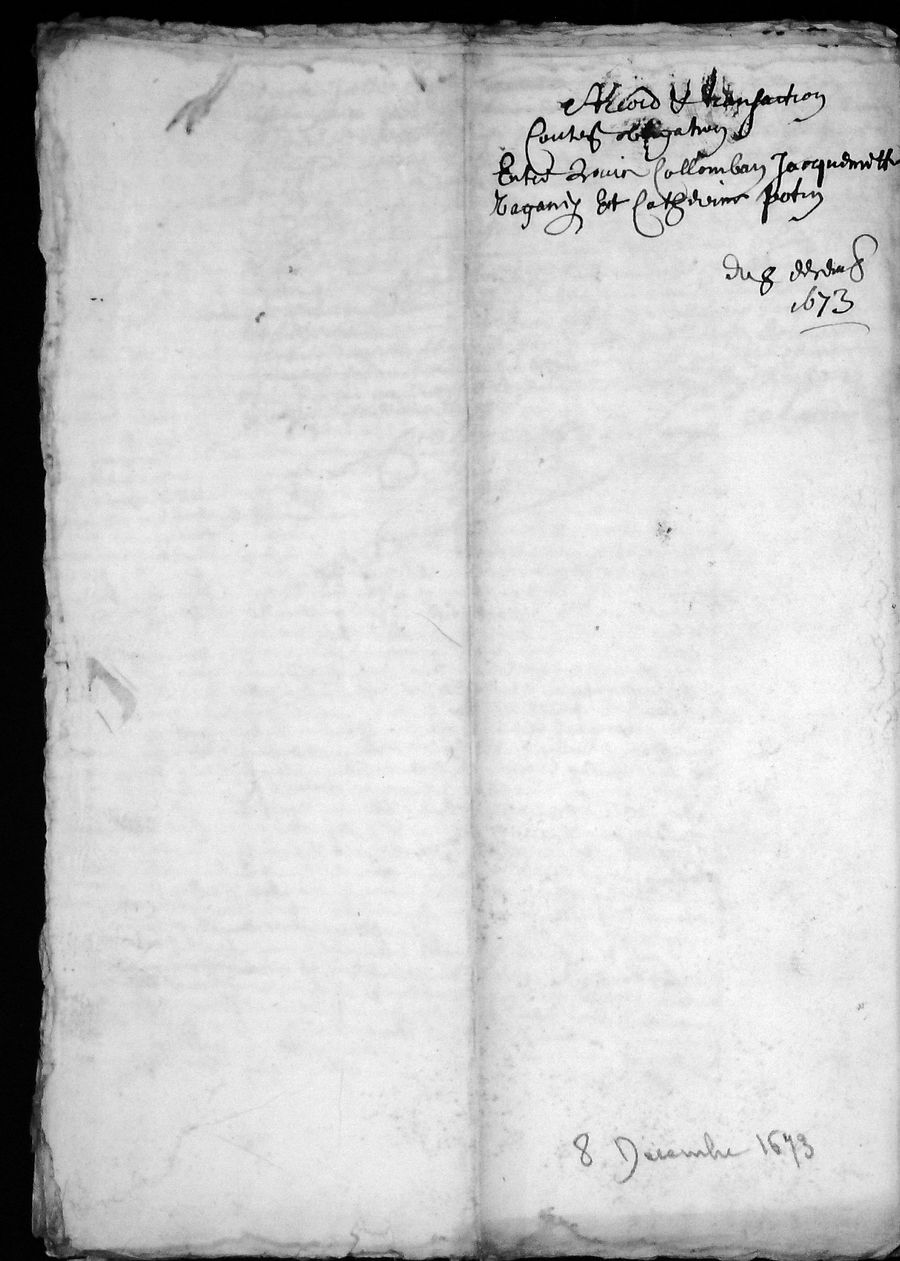 Accord & transaction
Contes obligation
Entre Louis Collomban Jacquemette
Et Catherine Potin
du 8 decemb
1673
8 Decembre 1673